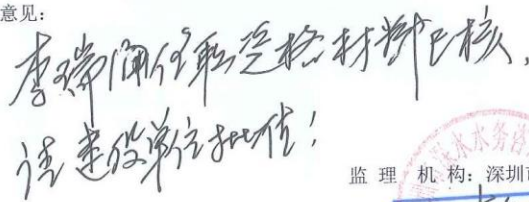 意见：
李瑞阐任职资格材料已核，
请建设单位批准！
水务
监 理 机 构：深圳